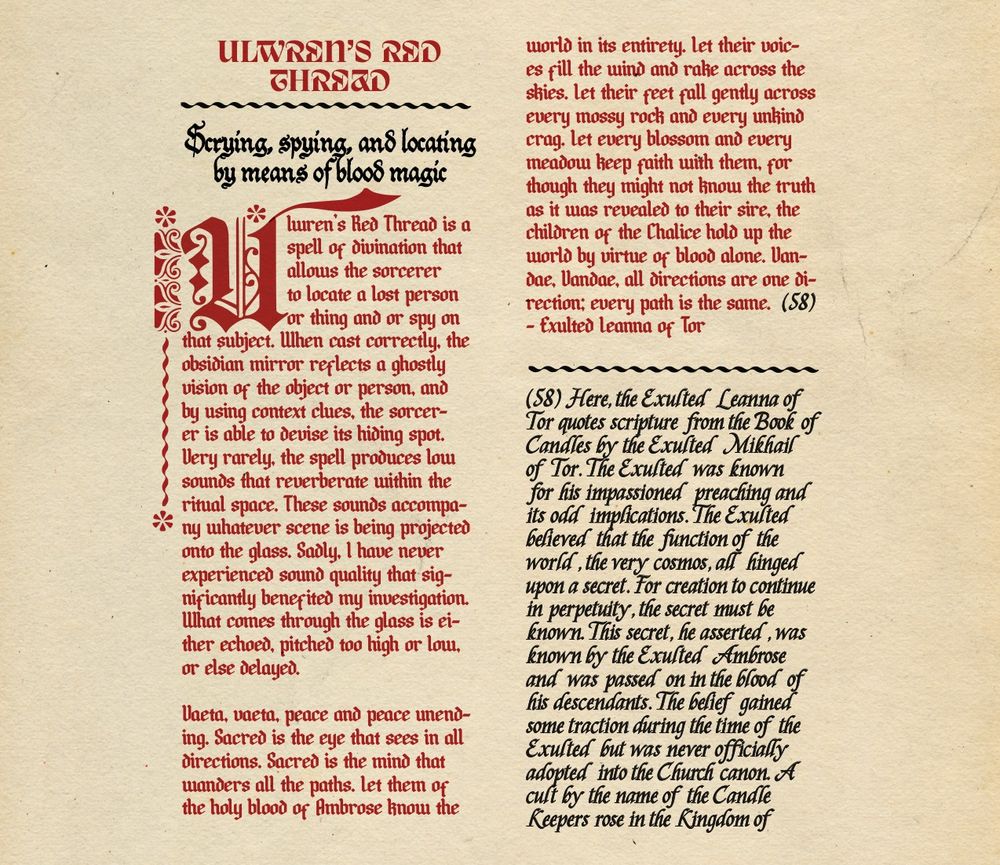 ULWREN'S RED
THREAD
Scrying, spying, and locating
by means of blood magic
Ulwren's Red Thread is a
spell of divination that
allows the sorcerer
to locate a lost person
or thing and or spy on
that subject. When cast correctly, the
obsidian mirror reflects a ghostly
vision of the object or person, and
by using context clues, the sorcer-
er is able to devise its hiding spot.
Very rarely, the spell produces low
sounds that reverberate within the
ritual space. These sounds accompa-
ny whatever scene is being projected
onto the glass. Sadly, I have never
experienced sound quality that sig-
nificantly benefited my investigation.
What comes through the glass is ei-
ther echoed, pitched too high or low,
or else delayed.
Vaeta, vaeta, peace and peace unend-
ing. Sacred is the eye that sees in all
directions. Sacred is the mind that
wanders all the paths. Let them of
the holy blood of Ambrose know the
world in its entirety. Let their voic-
es fill the wind and rake across the
skies. Let their feet fall gently across
every mossy rock and every unkind
crag. Let every blossom and every
meadow keep faith with them, for
though they might not know the truth
as it was revealed to their sire, the
children of the Chalice hold up the
world by virtue of blood alone. Van-
dae, Vandae, all directions are one di-
rection; every path is the same. (58)
- Exulted Leanna of Tor
(58) Here, the Exulted Leanna of
Tor quotes scripture from the Book of
Candles by the Exulted Mikhail
of Tor. The Exulted was known
for his impassioned preaching and
its odd implications. The Exulted
believed that the function of the
world, the very cosmos, all hinged
upon a secret. For creation to continue
in perpetuity, the secret must be
known. This secret, he asserted, was
known by the Exulted Ambrose
and was passed on in the blood of
his descendants. The belief gained
some traction during the time of the
Exulted but was never officially
adopted into the Church canon. A
cult by the name of the Candle
Keepers rose in the Kingdom of